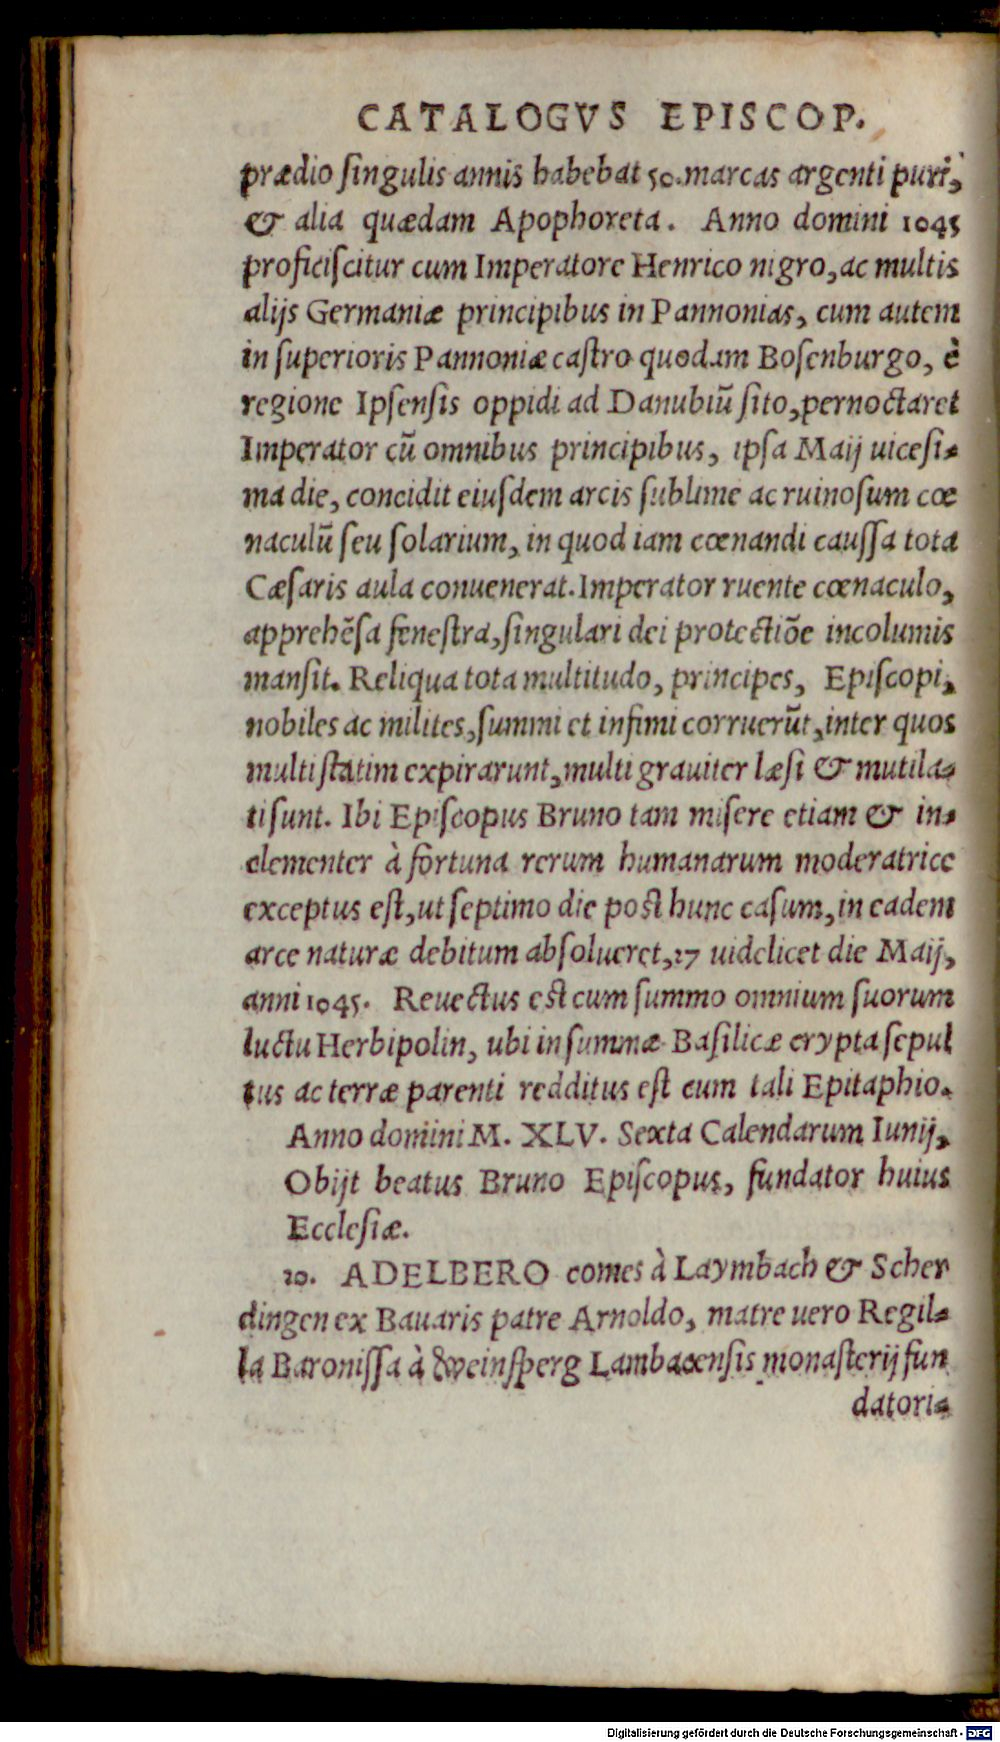 CATALOGVS EPISCOP.
prædio ſingulis annis habebat 50. marcas argenti puri,
& alia quædam Apophoreta. Anno domini 1045
proficiſcitur cum Imperatore Henrico nigro, ac multis
alijs Germaniæ principibus in Pannonias, cum autem
in ſuperioris Pannoniæ caſtro quodam Boſenburgo, è
regione Ipſenſis oppidi ad Danubiũ ſito, pernoctaret
Imperator cũ omnibus principibus, ipſa Maij uiceſi-
ma die, concidit eiuſdem arcis ſublime ac ruinoſum cœ
naculũ ſeu ſolarium, in quod iam cœnandi cauſſa tota
Cæſaris aula conuenerat. Imperator ruente cœnaculo,
apprehẽſa feneſtra, ſingulari dei protectiõe incolumis
manſit. Reliqua tota multitudo, principes, Epiſcopi,
nobiles ac milites, ſummi et infimi corruerũt, inter quos
multi ſtatim expirarunt, multi grauiter læſi & mutila-
ti ſunt. Ibi Epiſcopus Bruno tam miſere etiam & in-
clementer à fortuna rerum humanarum moderatrice
exceptus eſt, ut ſeptimo die poſt hunc caſum, in eadem
arce naturæ debitum abſolueret, 27 uidelicet die Maij,
anni 1045. Reuectus eſt cum ſummo omnium ſuorum
luctu Herbipolin, ubi in ſummæ Baſilicæ crypta ſepul
tus ac terræ parenti redditus eſt cum tali Epitaphio.
Anno domini M. XLV. Sexta Calendarum Iunij,
Obijt beatus Bruno Epiſcopus, fundator huius
Eccleſiæ.
20. ADELBERO comes à Laymbach & Scher
dingen ex Bauaris patre Arnoldo, matre uero Regil-
la Baroniſſa à Weinſperg Lambacenſis monaſterij fun
datori-
Digitalisierung gefördert durch die Deutsche Forschungsgemeinschaft - DFG